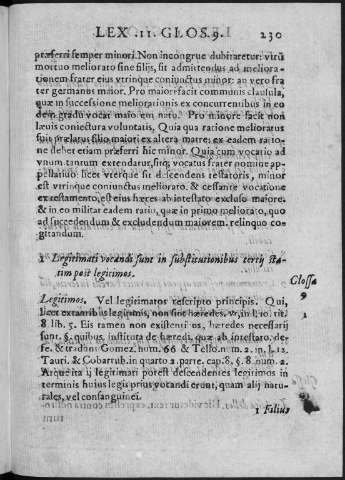 LEX .II. GLOS. 9. 230
præferri semper minori. Non incongrue dubitaretur: virũ
mortuo meliorato sine filijs, sit admittendus ad meliora-
tionem frater eius vtrinque coniunctus minor: an vero fra
ter germanus maior. Pro maiori facit communis clausula,
quæ in successione meliorationis ex concurrentibus in eo
dem gradu vocat maiorem natu. Pro minore facit non
læuis coniectura voluntatis, Quia qua ratione melioratus
fuit prælatus suo maiori ex altera matre: ex eadem ratio-
ne debet etiam præferri hic minor. Quia cum vocatio ad
vnum tantum extendatur, sitq; vocatus frater nomine ap-
pellatiuo: licet vterque sit descendens testatoris, minor
est vtrinque coniunctus meliorato. & cessante vocatione
ex testamento, est eius hæres ab intestato excluso maiore.
& in eo militat eadem ratio, quæ in primo meliorato, quo
ad succedendum & excludendum maiorem. relinquo co-
gitandum.
1 Legitimati vocandi sunt in substitutionibus tertij sta-
tim post legitimos.
Glossa
9
1
Legitimos. Vel legitimatos rescripto principis. Qui,
licet extantibus legitimis, non sint hæredes. vt, in l. 10. tit.
8 lib. 5. Eis tamen non existentibus, hæredes necessarij
sunt. §. quibus, instituta de hæredi. quæ ab intestato. de-
fe. & tradunt Gomez, num. 66 & Tello. num. 2. in l. 12.
Tauri. & Cobarrub. in quarto 2. parte. cap. 8. §. 8 num. 2.
Atque ita ij legitimati potest descendentes legitimos in
terminis huius legis prius vocandi erunt, quam alij natu-
rales, vel consanguinei.
1 Filius